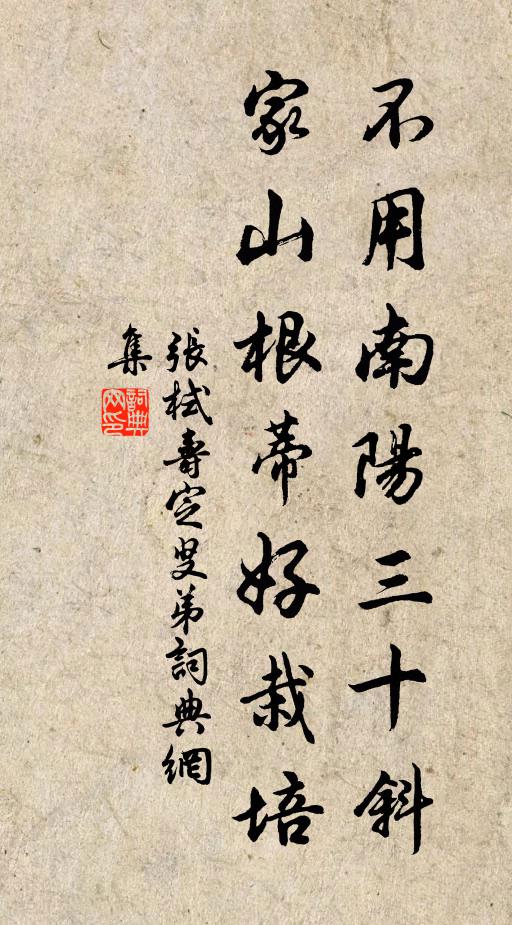 不用南陽三十斜
家山根蒂好栽培
張栻壽定叟弟詞典網
集
詞典
網印